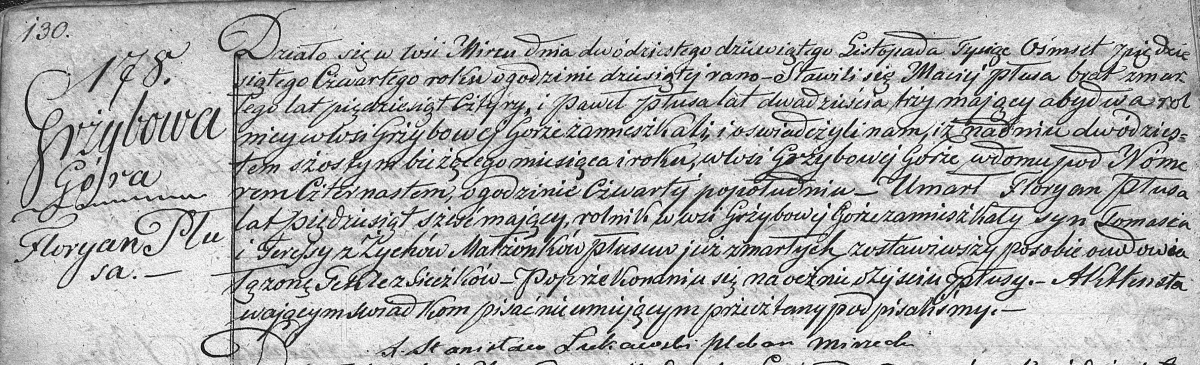 130.
178.
Grzybowa
Góra
Floryan Płu
sa.—
Działo się w wsi Mircu dnia dwódziestego dziewiątego Listopada Tysiąc Ośmset pięćdzie
siątego Czwartego roku o godzinie dziesiątej rano — Stawili się Maciej Płusa brat zmar
łego lat pięćdziesiąt cztyry, i Paweł Płusa lat dwadzieścia trzy mający abydwa rol
nicy w wsi Grzybowej Górze zamieszkali, i oświadczyli nam, iż w dniu dwódzies=
tem szostym bieżącego miesiąca i roku, w wsi Grzybowej Górze, w domu pod Nóme
rem Czternastem, o godzinie Czwartej popołudniu — Umarł Floryan Płusa
lat pięćdziesiąt sześć mający, rolnik w wsi Grzybowej Górze zamieszkały syn Tomasza
i Teressy z Zychów Małżonków Płusów już zmarłych, zostawiwszy po sobie owdowia
łą żonę Teklę z — Poprzekonaniu się naocznie o zejściu Płusy. — Akt ten sta
wającym świadkom pisać nie umiejącym przeczytany podpisaliśmy. —
X. Stanisław Łukawski pleban mirzecki